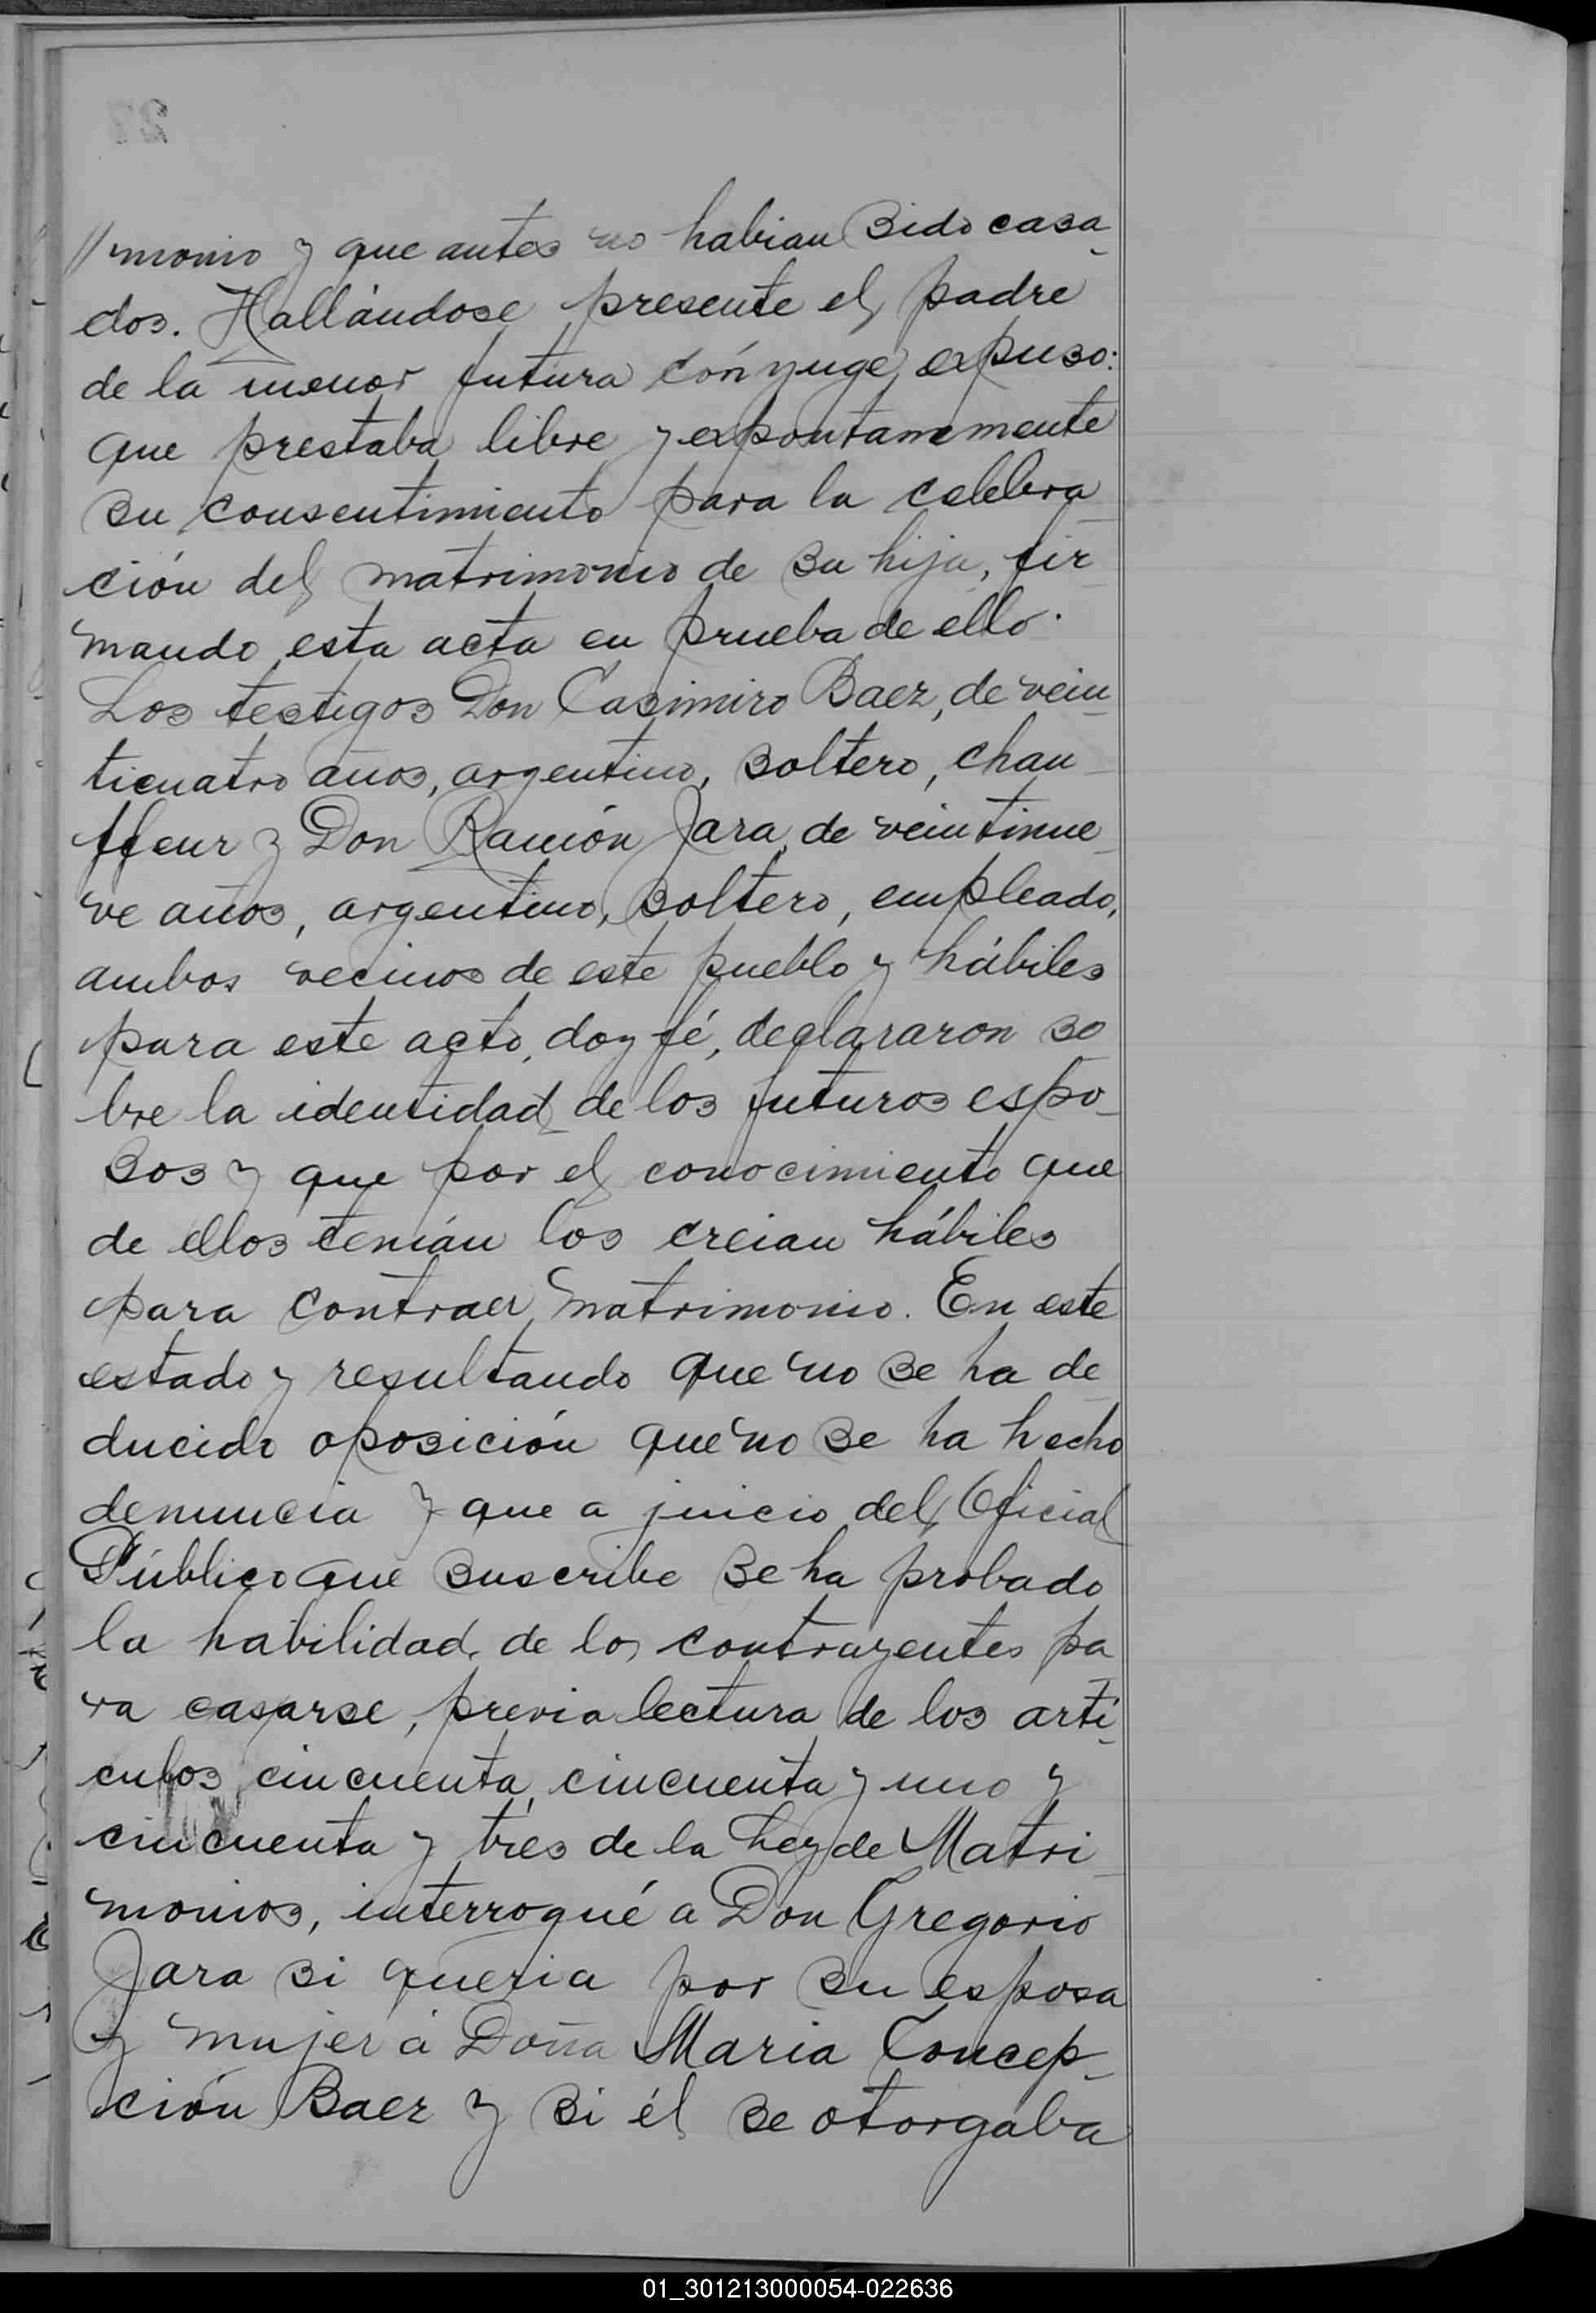 27
// monio y que antes no habian sido casa-
dos. Hallándose presente el padre
de la menor futura cónyuge, expuso:
que prestaba libre y expontanemente
su consentimiento para la celebra-
ción del matrimonio de su hija, fir-
mando esta acta en prueba de ello.
Los testigos Don Casimiro Baez, de vein-
ticuatro años, argentino, soltero, chau-
ffeur y Don Ramón Jara, de veintinue-
ve años, argentino, soltero, empleado,
ambos vecinos de este pueblo y hábiles
para este acto, doy fé, declararon so-
bre la identidad de los futuros espo-
sos y que por el conocimiento que
de ellos tenián los creian hábiles
para contraer matrimonio. En este
estado y resultando que no se ha de-
ducido oposición que no se ha hecho
denuncia y que a juicio del Oficial
Público que suscribe se ha probado
la habilidad de los contrayentes pa-
ra casarse, previa lectura de los artí-
culos cincuenta, cincuenta y uno y
cincuenta y tres de la Ley de Matri-
monios, interrogué a Don Gregorio
Jara si queria por su esposa
y mujer á Doña Maria Concep-
ción Baez y si él se otorgaba
01_301213000054-022636